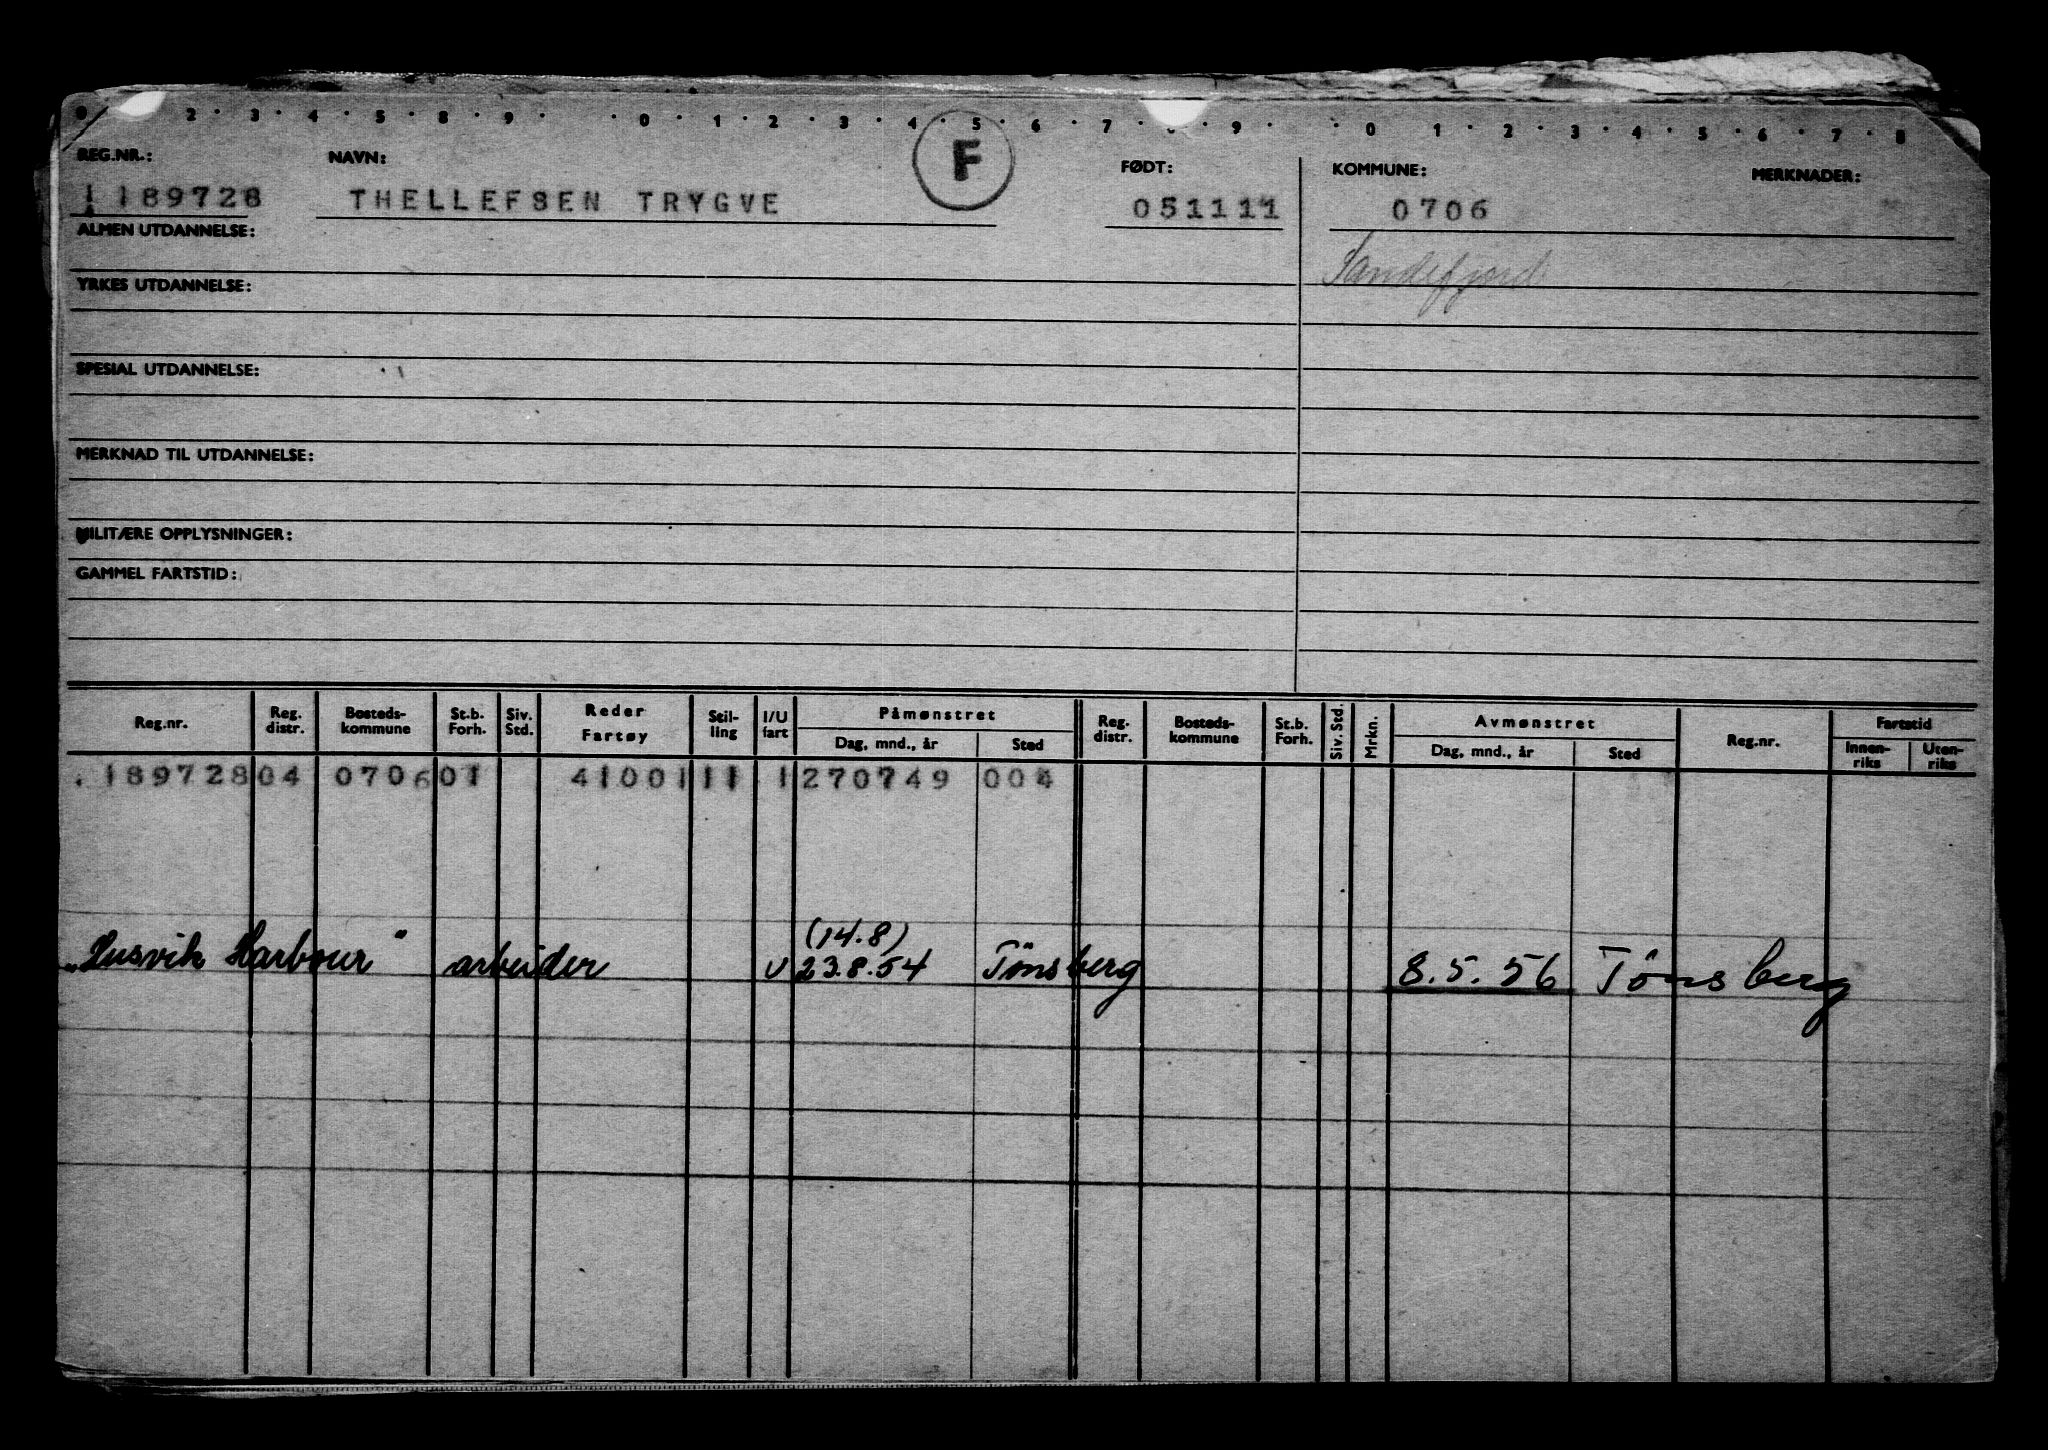 0 2 · 3 · 4 · 5 · 8 · 9 · · 0 · 1 · 2 · 3 · 4 · 5 · 6 · 7 · 8 · 9 · · 0 · 1 · 2 · 3 · 4 · 5 · 6 · 7 · 8
REG.NR.: NAVN: F FØDT: KOMMUNE: MERKNADER:
1189728 THELLEFSEN TRYGVE 051111 0706
ALMEN UTDANNELSE: Sandefjord
YRKES UTDANNELSE:
SPESIAL UTDANNELSE:
MERKNAD TIL UTDANNELSE:
MILITÆRE OPPLYSNINGER:
GAMMEL FARTSTID:
Reg.nr. Reg. distr. Bosteds-kommune St.b. Forh. Siv. Std. Reder Fartøy Stil-ling I/U fart Påmønstret Dag, mnd., år Sted Reg. distr. Bosteds-kommune St.b. Forh. Siv. Std. Mrkn. Avmønstret Dag, mnd., år Sted Reg.nr. Fartstid Innen-riks Uten-riks
189728 04 0706 01 41001 11 1 270749 004
(14.8)
"Husvik Harbour" arbeider U 23.8.54 Tönsberg 8.5.56 Tönsberg